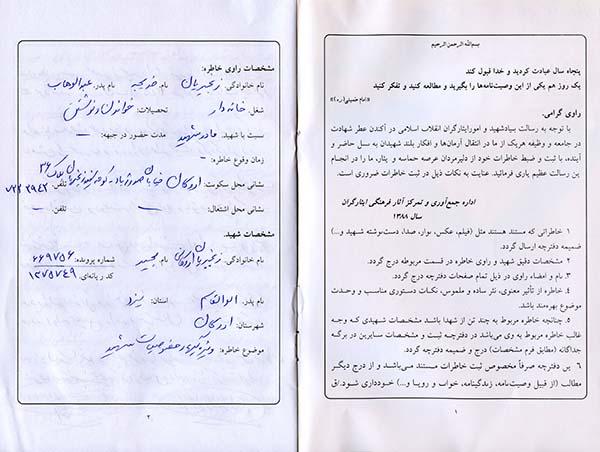 بسم‌الله الرحمن الرحیم
پنجاه سال عبادت کردید و خدا قبول کند
یک روز هم یکی از این وصیت‌نامه‌ها را بگیرید و مطالعه کنید و تفکر کنید
«امام خمینی(ره)»
راوی گرامی،
با توجه به رسالت بنیادشهید و امورایثارگران انقلاب اسلامی در آکندن عطر شهادت
در جامعه و وظیفه هریک از ما در انتقال آرمان‌ها و افکار بلند شهیدان به نسل حاضر و
آینده، با ثبت و ضبط خاطرات خود از دلیرمردان عرصه حماسه و ایثار، ما را در انجام
ین رسالت عظیم یاری فرمائید. عنایت به نکات ذیل در ثبت خاطرات ضروری است.
اداره جمع‌آوری و تمرکز آثار فرهنگی ایثارگران
سال ۱۳۸۸
۱ خاطراتی که مستند هستند مثل (فیلم، عکس، نوار، صدا، دست‌نوشته شهید و...)
ضمیمه دفترچه ارسال گردد.
۲ مشخصات دقیق شهید و راوی خاطره در قسمت مربوطه درج گردد.
۳. نام و امضاء راوی در ذیل تمام صفحات دفترچه درج گردد.
۴. خاطره از تأثیر معنوی، نثر ساده و ملموس، نکات دستوری مناسب و وحدت
موضوع بهره‌مند باشد.
۵. چنانچه خاطره مربوط به چند تن از شهدا باشد مشخصات شهیدی که وجه
غالب خاطره مربوط به وی می‌باشد در دفترچه ثبت و مشخصات سایرین در برگه
جداگانه (مطابق فرم مشخصات) درج و ضمیمه دفترچه گردد.
۶ ین دفترچه صرفاً مخصوص ثبت خاطرات مستند می‌باشد و از درج دیگر
مطالب (از قبیل وصیت‌نامه، زندگینامه، خواب و رویا و...) خودداری شود.
۱
مشخصات راوی خاطره:
نام خانوادگی: زنجیریان نام: خدیجه نام پدر: عبدالوهاب
شغل: خانه دار تحصیلات: خواندن و نوشتن
نسبت با شهید: مادر شهید مدت حضور در جبهه: ـ
زمان وقوع خاطره: ـ
نشانی محل سکونت: اردکان خیابان کوچه شهید پلاک ۳۶ تلفن: ۷۲۲۳۹۴۳
نشانی محل اشتغال: ـ تلفن: ـ
مشخصات شهید:
نام خانوادگی: زنجیریان اردکانی نام: مجید شماره پرونده: ۶۶۹۷۵۶
کد رایانه‌ای: ۱۲۷۵۷۴۹
نام پدر: ابوالقاسم استان: یزد
شهرستان: اردکان
موضوع خاطره: ویژگیها و خصوصیات شهید
۲